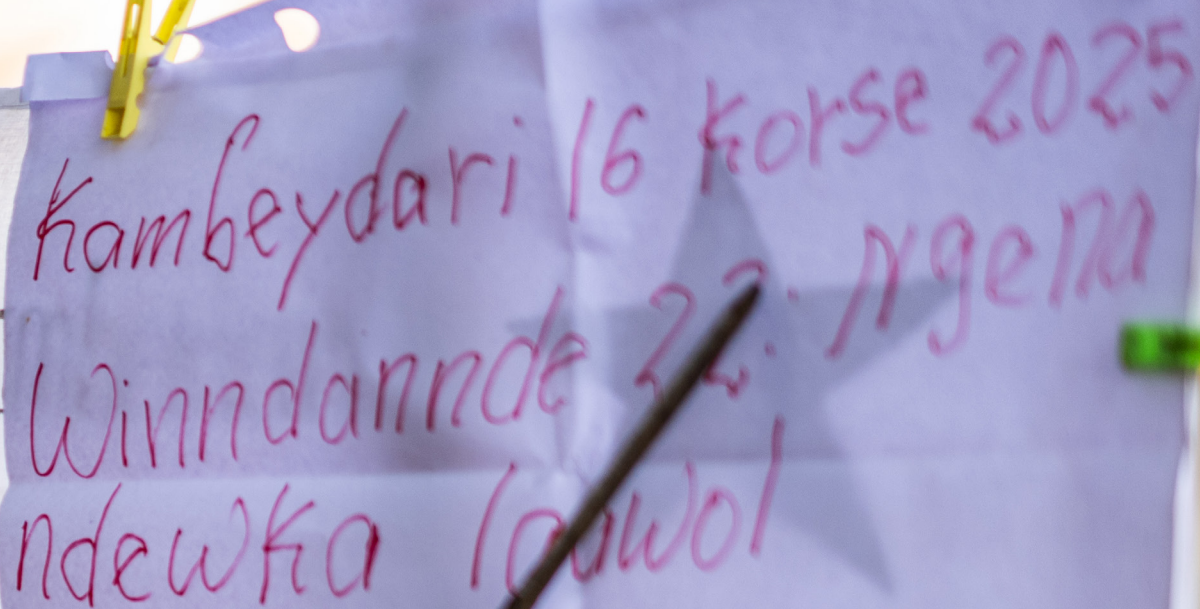 Kamɓeydari 16 Korse 2025
Winndannde 22: Ngena
ndewka laawol